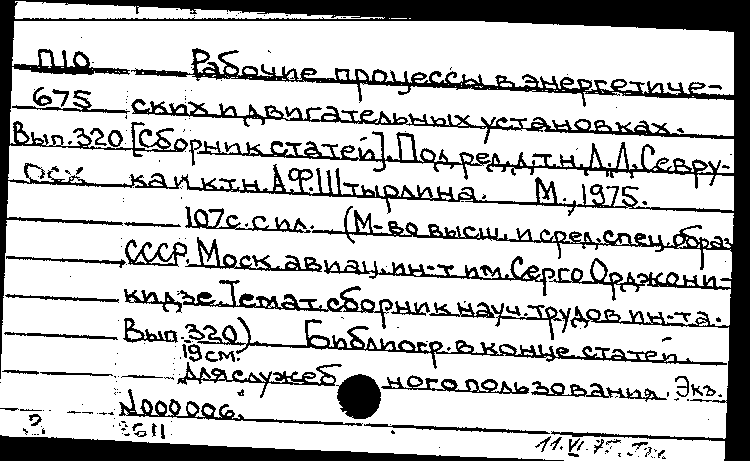 П10 Рабочие процессы в энергетиче-
675 ских и двигательных установках.
Вып.320 [Сборник статей]. Под ред. д.т.н. Л.Л.Севру-
ОСХ ка и к.т.н. А.Ф.Штырлина. М., 1975.
107с. с ил. (М-во высш. и сред. спец. образ
СССР. Моск. авиац. ин-т им. Серго Орджони-
кидзе. Темат. сборник науч. трудов ин-та.
Вып.320). Библиогр. в конце статей.
19см.
"Для служебного пользования. Экз.
N000006."
2 3611
11.VI.75г.